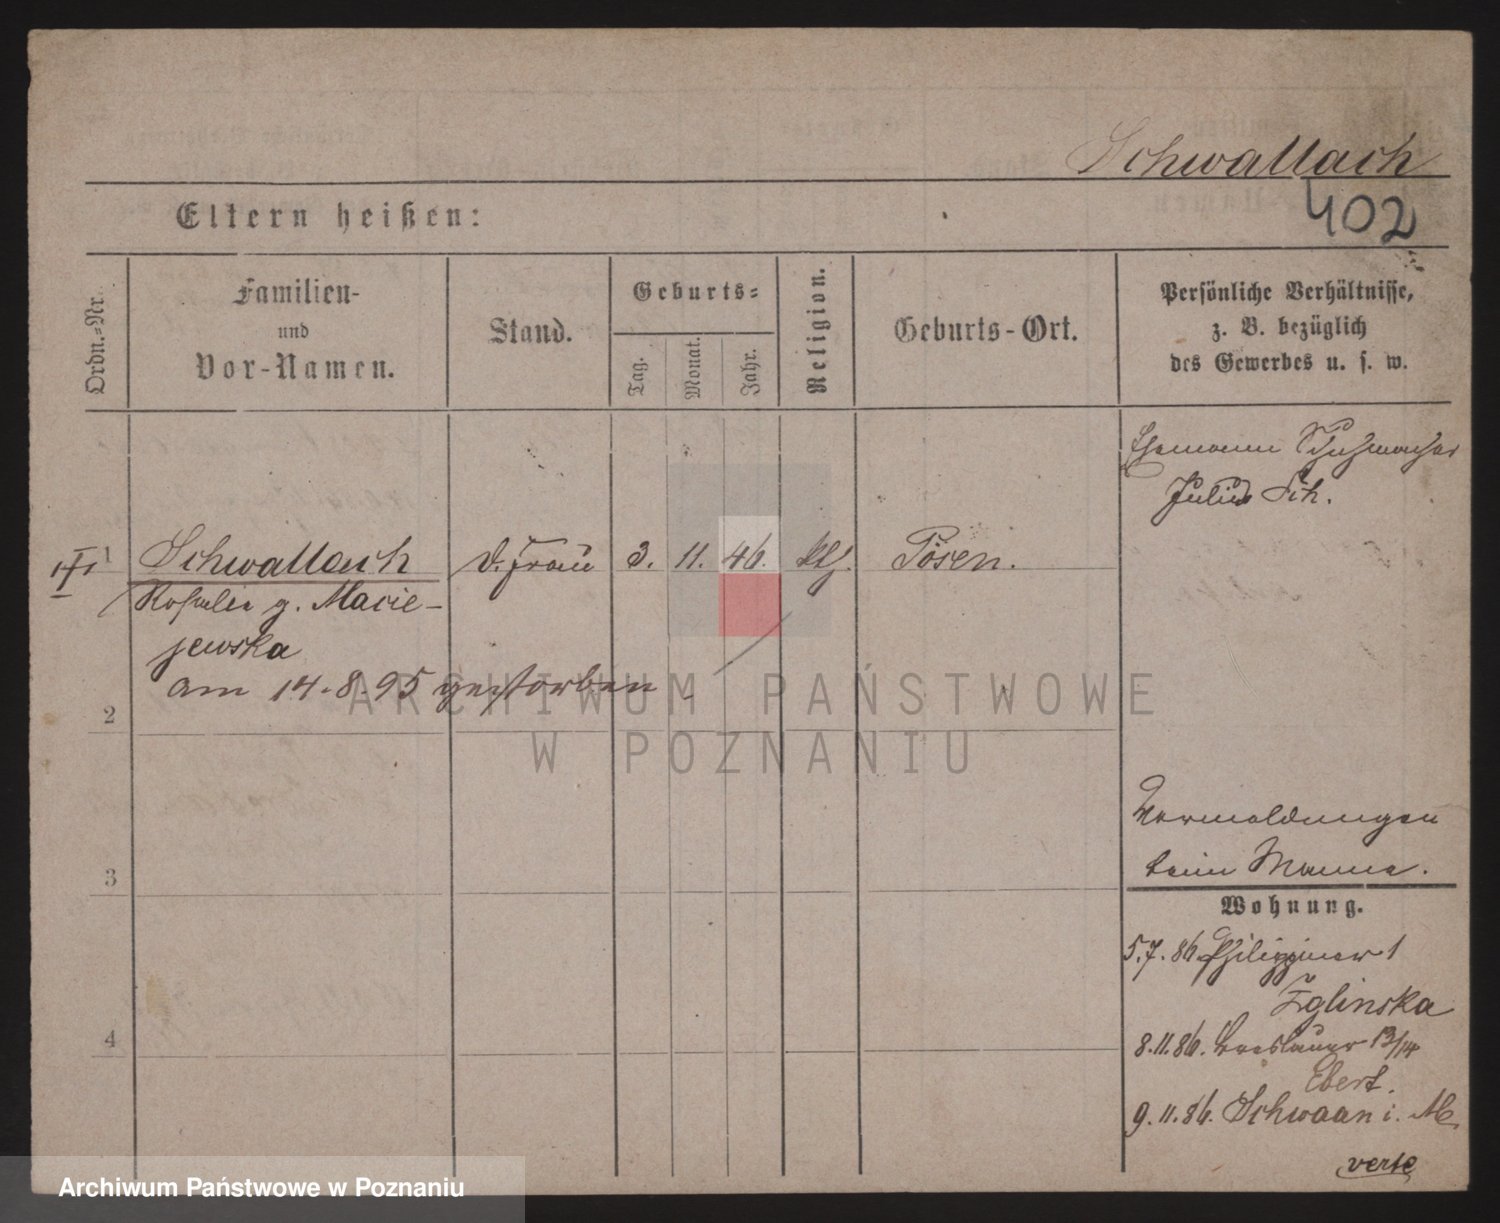 Schwallach
402
Eltern heißen:
Ordn.-Nr.
Familien-
und
Vor-Namen.
Stand.
Geburts-
Tag.
Monat.
Jahr.
Religion.
Geburts-Ort.
Persönliche Verhältnisse,
z. B. bezüglich
des Gewerbes u. s. w.
Ehemann Schuhmacher
Julius Sch.
1 Schwallach d. Frau 3. 11. 46. kth. Posen.
Rosalie g. Macie-
jewska
am 14.8.95 gestorben
2
3
4
Vermeldungen
beim Manne.
Wohnung.
5.7.86. Philippiner 1
Zglinska
8.11.86. Breslauer 13/14
Ebert.
9.11.86. Schwaan i. M.
verte
ARCHIWUM PAŃSTWOWE
W POZNANIU
Archiwum Państwowe w Poznaniu